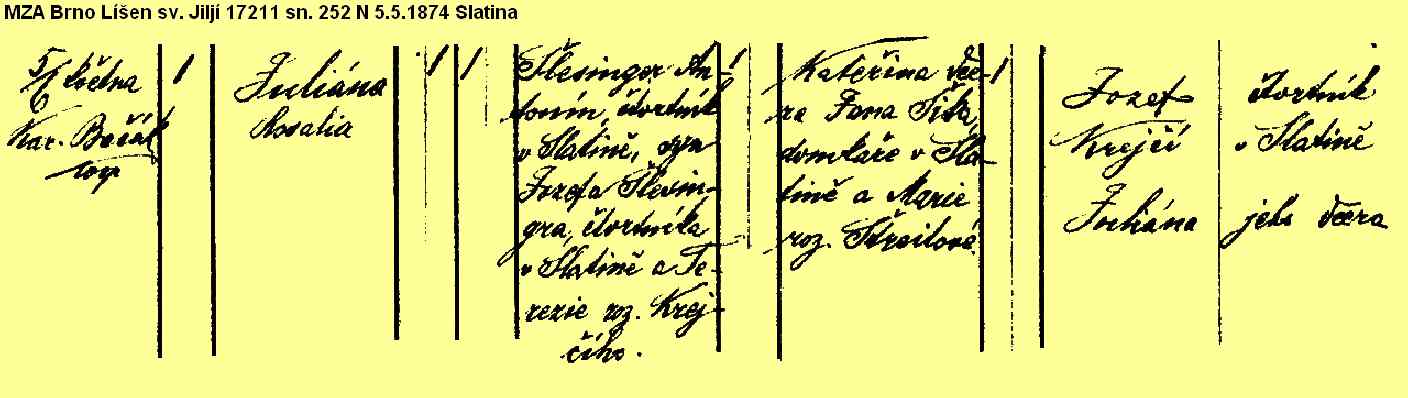 MZA Brno Líšen sv. Jiljí 17211 sn. 252 N 5.5.1874 Slatina
5/6 května
Kar. Bočák
1
Juliána
Rosalia
1 1
Šlesinger An-
tonín, čtvrtník
v Slatině, syn
Jozefa Šlesin-
gra, čtvrtníka
v Slatině a Te-
rezie roz. Krej-
čího.
1
Kateřina dce-
ra Jana
domkaře v Sla-
tině a Marie
roz.
1
Jozef
Krejčí
Juliána
čtvrtník
v Slatině
jeho dcera